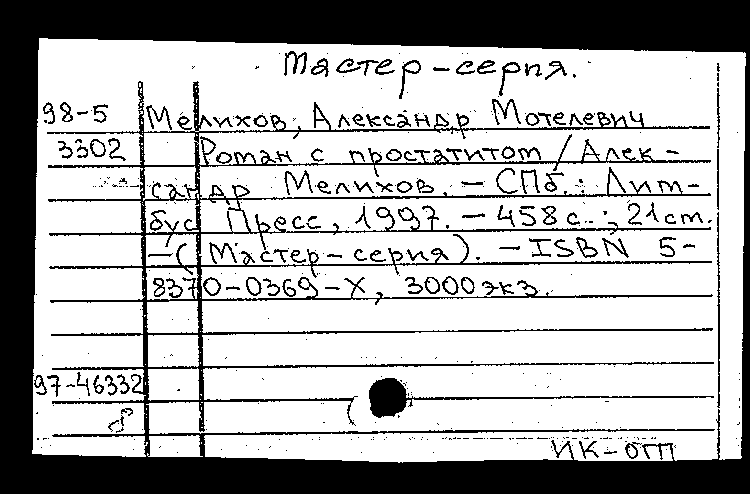 Мастер-серия.
98-5 Мелихов, Александр Мотелевич
3302 Роман с простатитом / Алек-
сандр Мелихов. - СПб.: Лим-
бус Пресс, 1997. - 458 с.; 21 см.
- (Мастер-серия). - ISBN 5-
8370-0369-X, 3000 экз.
97-46332
ИК-ОГП